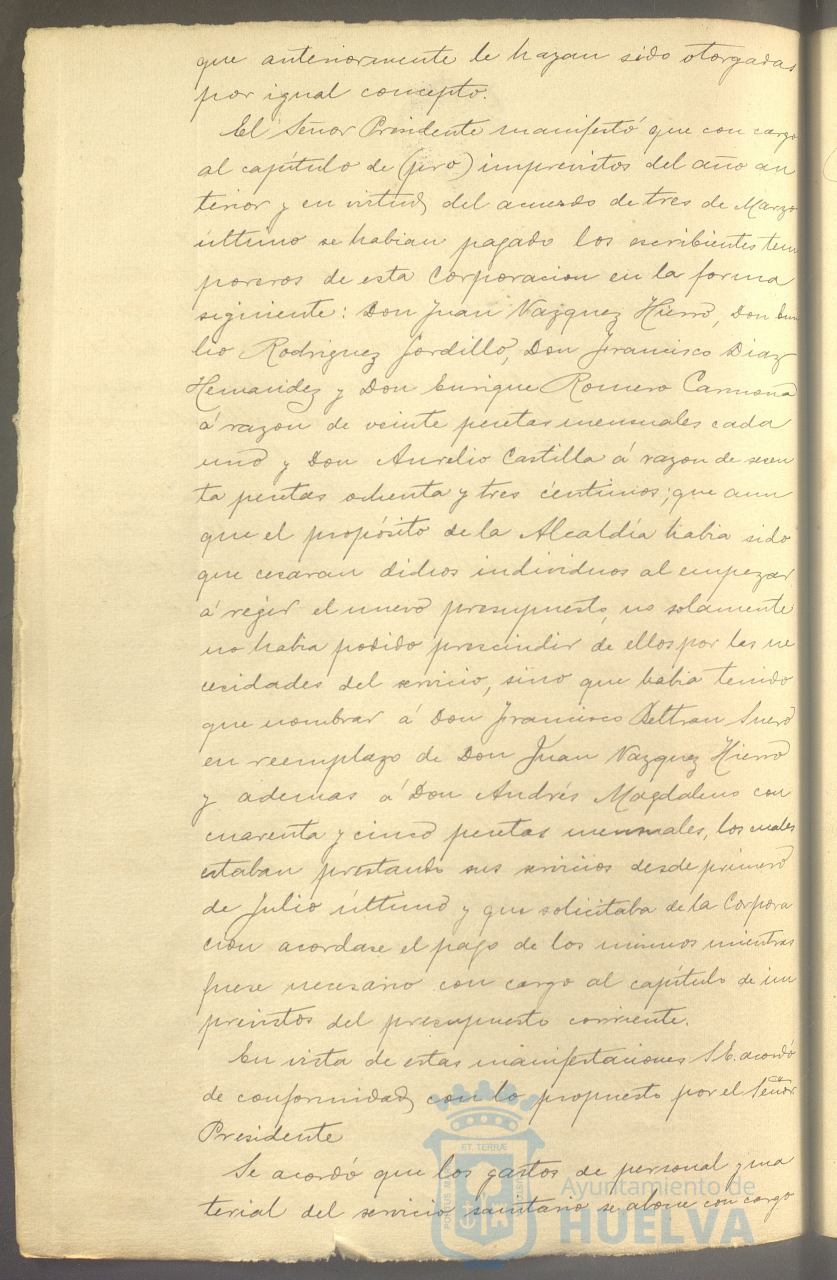 que anteriormente le hayan sido otorgadas
por igual concepto.
El Señor Presidente manifestó que con cargo
al capítulo de (pro) imprevistos del año an
terior y en virtud del acuerdo de tres de Marzo
último se habian pagado los escribientes tem
poreros de esta Corporacion en la forma
siguiente: Don Juan Vazquez Hierro, Don
lio Rodriguez Gordillo, Don Francisco Diaz
Hernandez y Don Enrique Romero Carmona
á razon de veinte pesetas mensuales cada
uno y Don Aurelio Castilla á razon de sesen
ta pesetas ochenta y tres céntimos; que aun
que el propósito de la Alcaldía habia sido
que cesaran dichos individuos al empezar
á regir el nuevo presupuesto, no solamente
no habia podido prescindir de ellos por las ne
cesidades del servicio, sino que habia tenido
que nombrar á Don Francisco Beltran Suero
en reemplazo de Don Juan Vazquez Hierro
y ademas á Don Andrés Magdaleno con
cuarenta y cinco pesetas mensuales, los cuales
estaban prestando sus servicios desde primero
de Julio último y que solicitaba de la Corpora
cion acordase el pago de los mismos mientras
fuese necesario con cargo al capítulo de im
previstos del presupuesto corriente.
En vista de estas manifestaciones S.E. acordó
de conformidad con lo propuesto por el Señor
Presidente
Se acordó que los gastos de personal y ma
terial del servicio sanitario se abone con cargo
ET TERRÆ
Ayuntamiento de
HUELVA